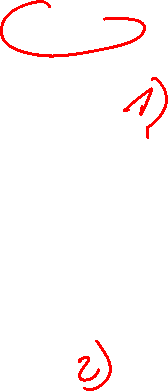 1)
2)